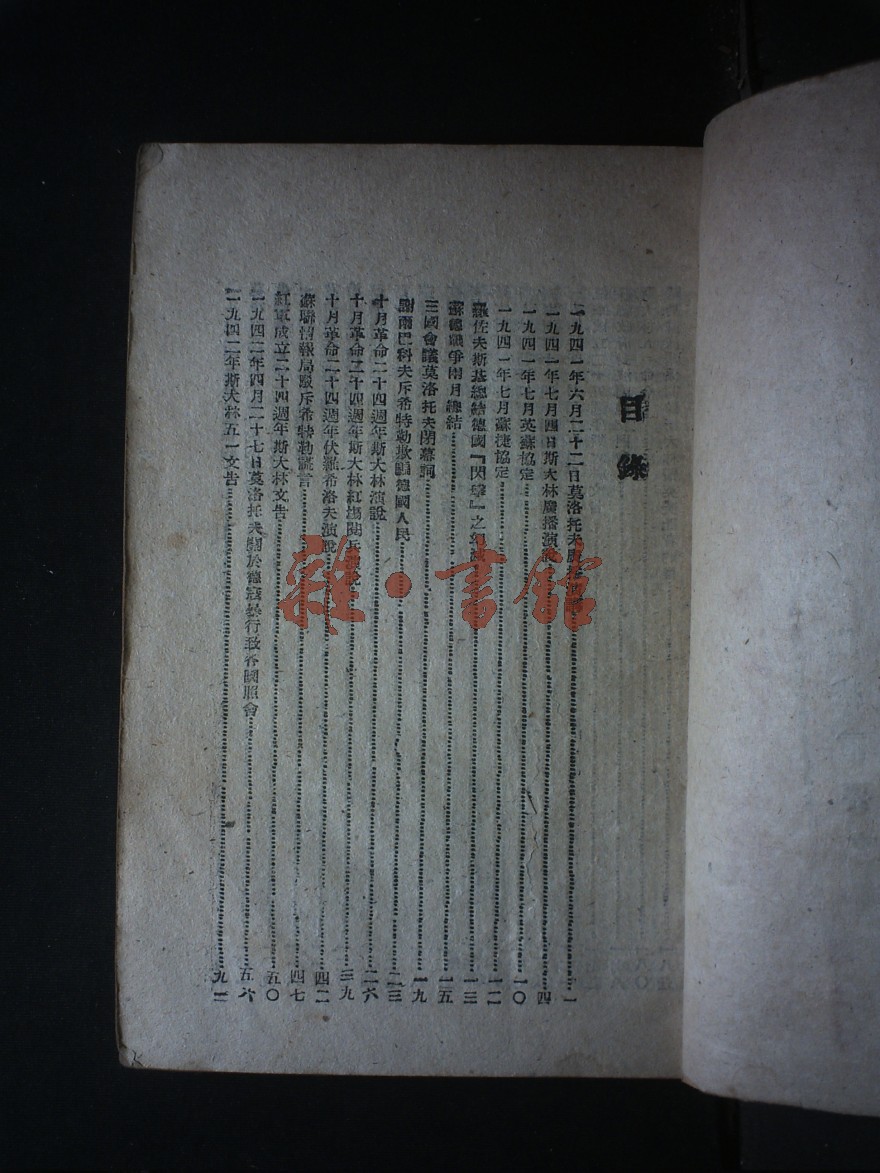 目錄
一九四一年六月二十二日莫洛托夫廣播演說……一
一九四一年七月四日斯大林廣播演說……四
一九四一年七月英蘇協定……一〇
一九四一年七月蘇捷協定……一二
羅佐夫斯基總結德國『閃擊』之幻滅……一三
蘇德戰爭兩月總結……一五
三國會議莫洛托夫閉幕詞……一九
謝爾巴科夫斥希特勒欺騙德國人民……二三
十月革命二十四週年斯大林演說……二六
十月革命二十四週年斯大林紅場閱兵演說……三九
十月革命二十四週年伏羅希洛夫演說……四二
蘇聯情報局駁斥希特勒謊言……四七
紅軍成立二十四週年斯大林文告……五〇
一九四二年四月二十七日莫洛托夫關於德寇暴行致各國照會……五六
一九四二年斯大林五一文告……九二
雜·書館